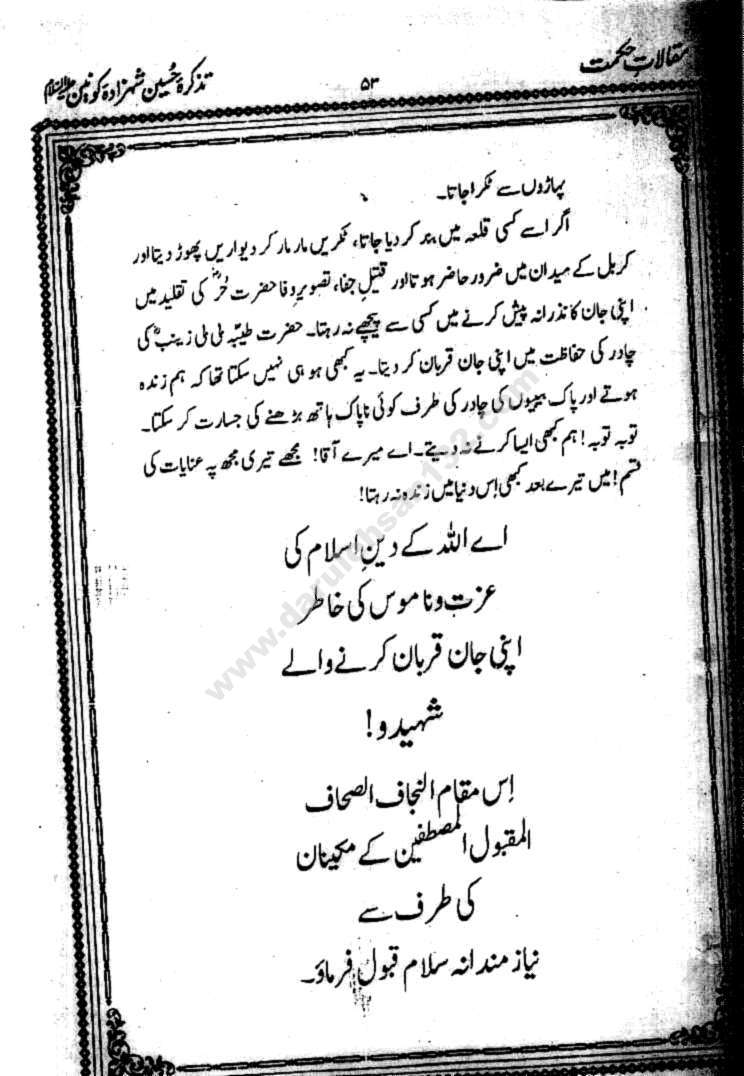 مقالاتِ حکمت
۵۳
تذکرۂ حُسین شہزادۂ کونین علیہ السلام
پہاڑوں سے ٹکرا جاتا۔
اگر اسے کسی قلعہ میں بند کر دیا جاتا، ٹکریں مار مار کر دیواریں پھوڑ دیتا اور
کربل کے میدان میں ضرور حاضر ہوتا اور قتیلِ جفا، تصویرِ وفا حضرت حُرؓ کی تقلید میں
اپنی جان کا نذرانہ پیش کرنے میں کسی سے پیچھے نہ رہتا۔ حضرت طیّبہ بی بی زینبؓ کی
چادر کی حفاظت میں اپنی جان قربان کر دیتا۔ یہ کبھی ہو ہی نہیں سکتا تھا کہ ہم زندہ
ہوتے اور پاک بیبیوں کی چادر کی طرف کوئی ناپاک ہاتھ بڑھنے کی جسارت کر سکتا۔
توبہ توبہ! ہم کبھی ایسا کرنے نہ دیتے۔ اے میرے آقا! مجھے تیری مجھ پہ عنایات کی
قسم! میں تیرے بعد کبھی اِس دنیا میں زندہ نہ رہتا!
اے اللہ کے دینِ اسلام کی
عزت و ناموس کی خاطر
اپنی جان قربان کرنے والے
شہیدو!
اِس مقام النجاف الصحاف
المقبول المصطفین کے مکینان
کی طرف سے
نیاز مندانہ سلام قبول فرماؤ۔
www.darulehsan192.com